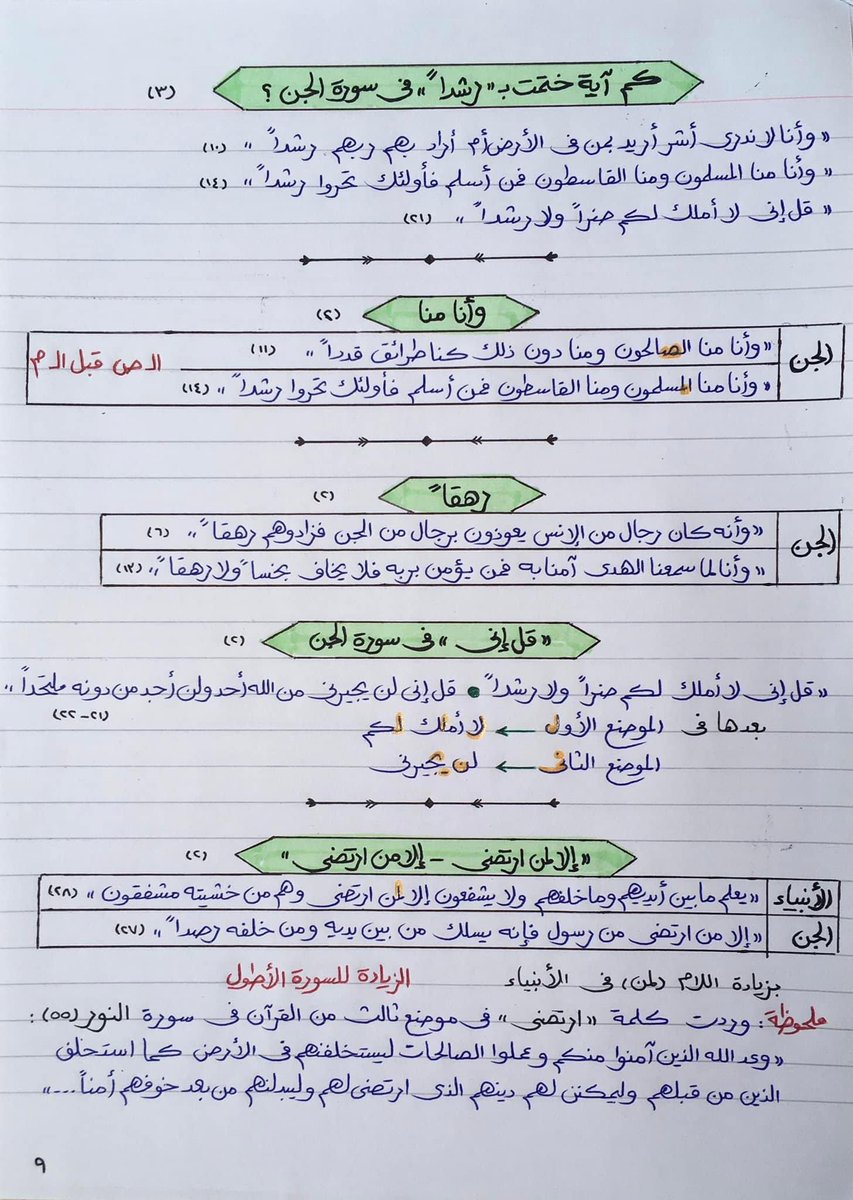 كم آية ختمت بـ "رشداً" فى سورة الجن ؟ (٣)
"وأنا لا ندرى أشر أريد بمن فى الأرض أم أراد بهم ربهم رشداً" (١٠)
"وأنا منا المسلمون ومنا القاسطون فمن أسلم فأولئك تحروا رشداً" (١٤)
"قل إنى لا أملك لكم ضراً ولا رشداً" (٢١)
وأنا منا (٢)
الجن
"وأنا منا الصالحون ومنا دون ذلك كنا طرائق قدداً" (١١)
"وأنا منا المسلمون ومنا القاسطون فمن أسلم فأولئك تحروا رشداً" (١٤)
الـ ص قبل الـ م
رهقاً (٢)
الجن
"وأنه كان رجال من الإنس يعوذون برجال من الجن فزادوهم رهقاً" (٦)
"وأنا لما سمعنا الهدى آمنا به فمن يؤمن بربه فلا يخاف بخساً ولا رهقاً" (١٣)
"قل إنى" فى سورة الجن (٢)
"قل إنى لا أملك لكم ضراً ولا رشداً • قل إنى لن يجيرنى من الله أحد ولن أجد من دونه ملتحداً"
(٢١-٢٢)
بعدها فى الموضع الأول ← لا أملك لكم
الموضع الثانى ← لن يجيرنى
"إلا لمن ارتضى - إلا من ارتضى" (٢)
الأنبياء "يعلم ما بين أيديهم وما خلفهم ولا يشفعون إلا لمن ارتضى وهم من خشيته مشفقون" (٢٨)
الجن "إلا من ارتضى من رسول فإنه يسلك من بين يديه ومن خلفه رصداً" (٢٧)
بزيادة اللام (لمن) فى الأنبياء الزيادة للسورة الأطول
ملحوظة : وردت كلمة "ارتضى" فى موضع ثالث من القرآن فى سورة النور (٥٥) :
"وعد الله الذين آمنوا منكم وعملوا الصالحات ليستخلفنهم فى الأرض كما استخلف
الذين من قبلهم وليمكنن لهم دينهم الذى ارتضى لهم وليبدلنهم من بعد خوفهم أمناً...."
٩